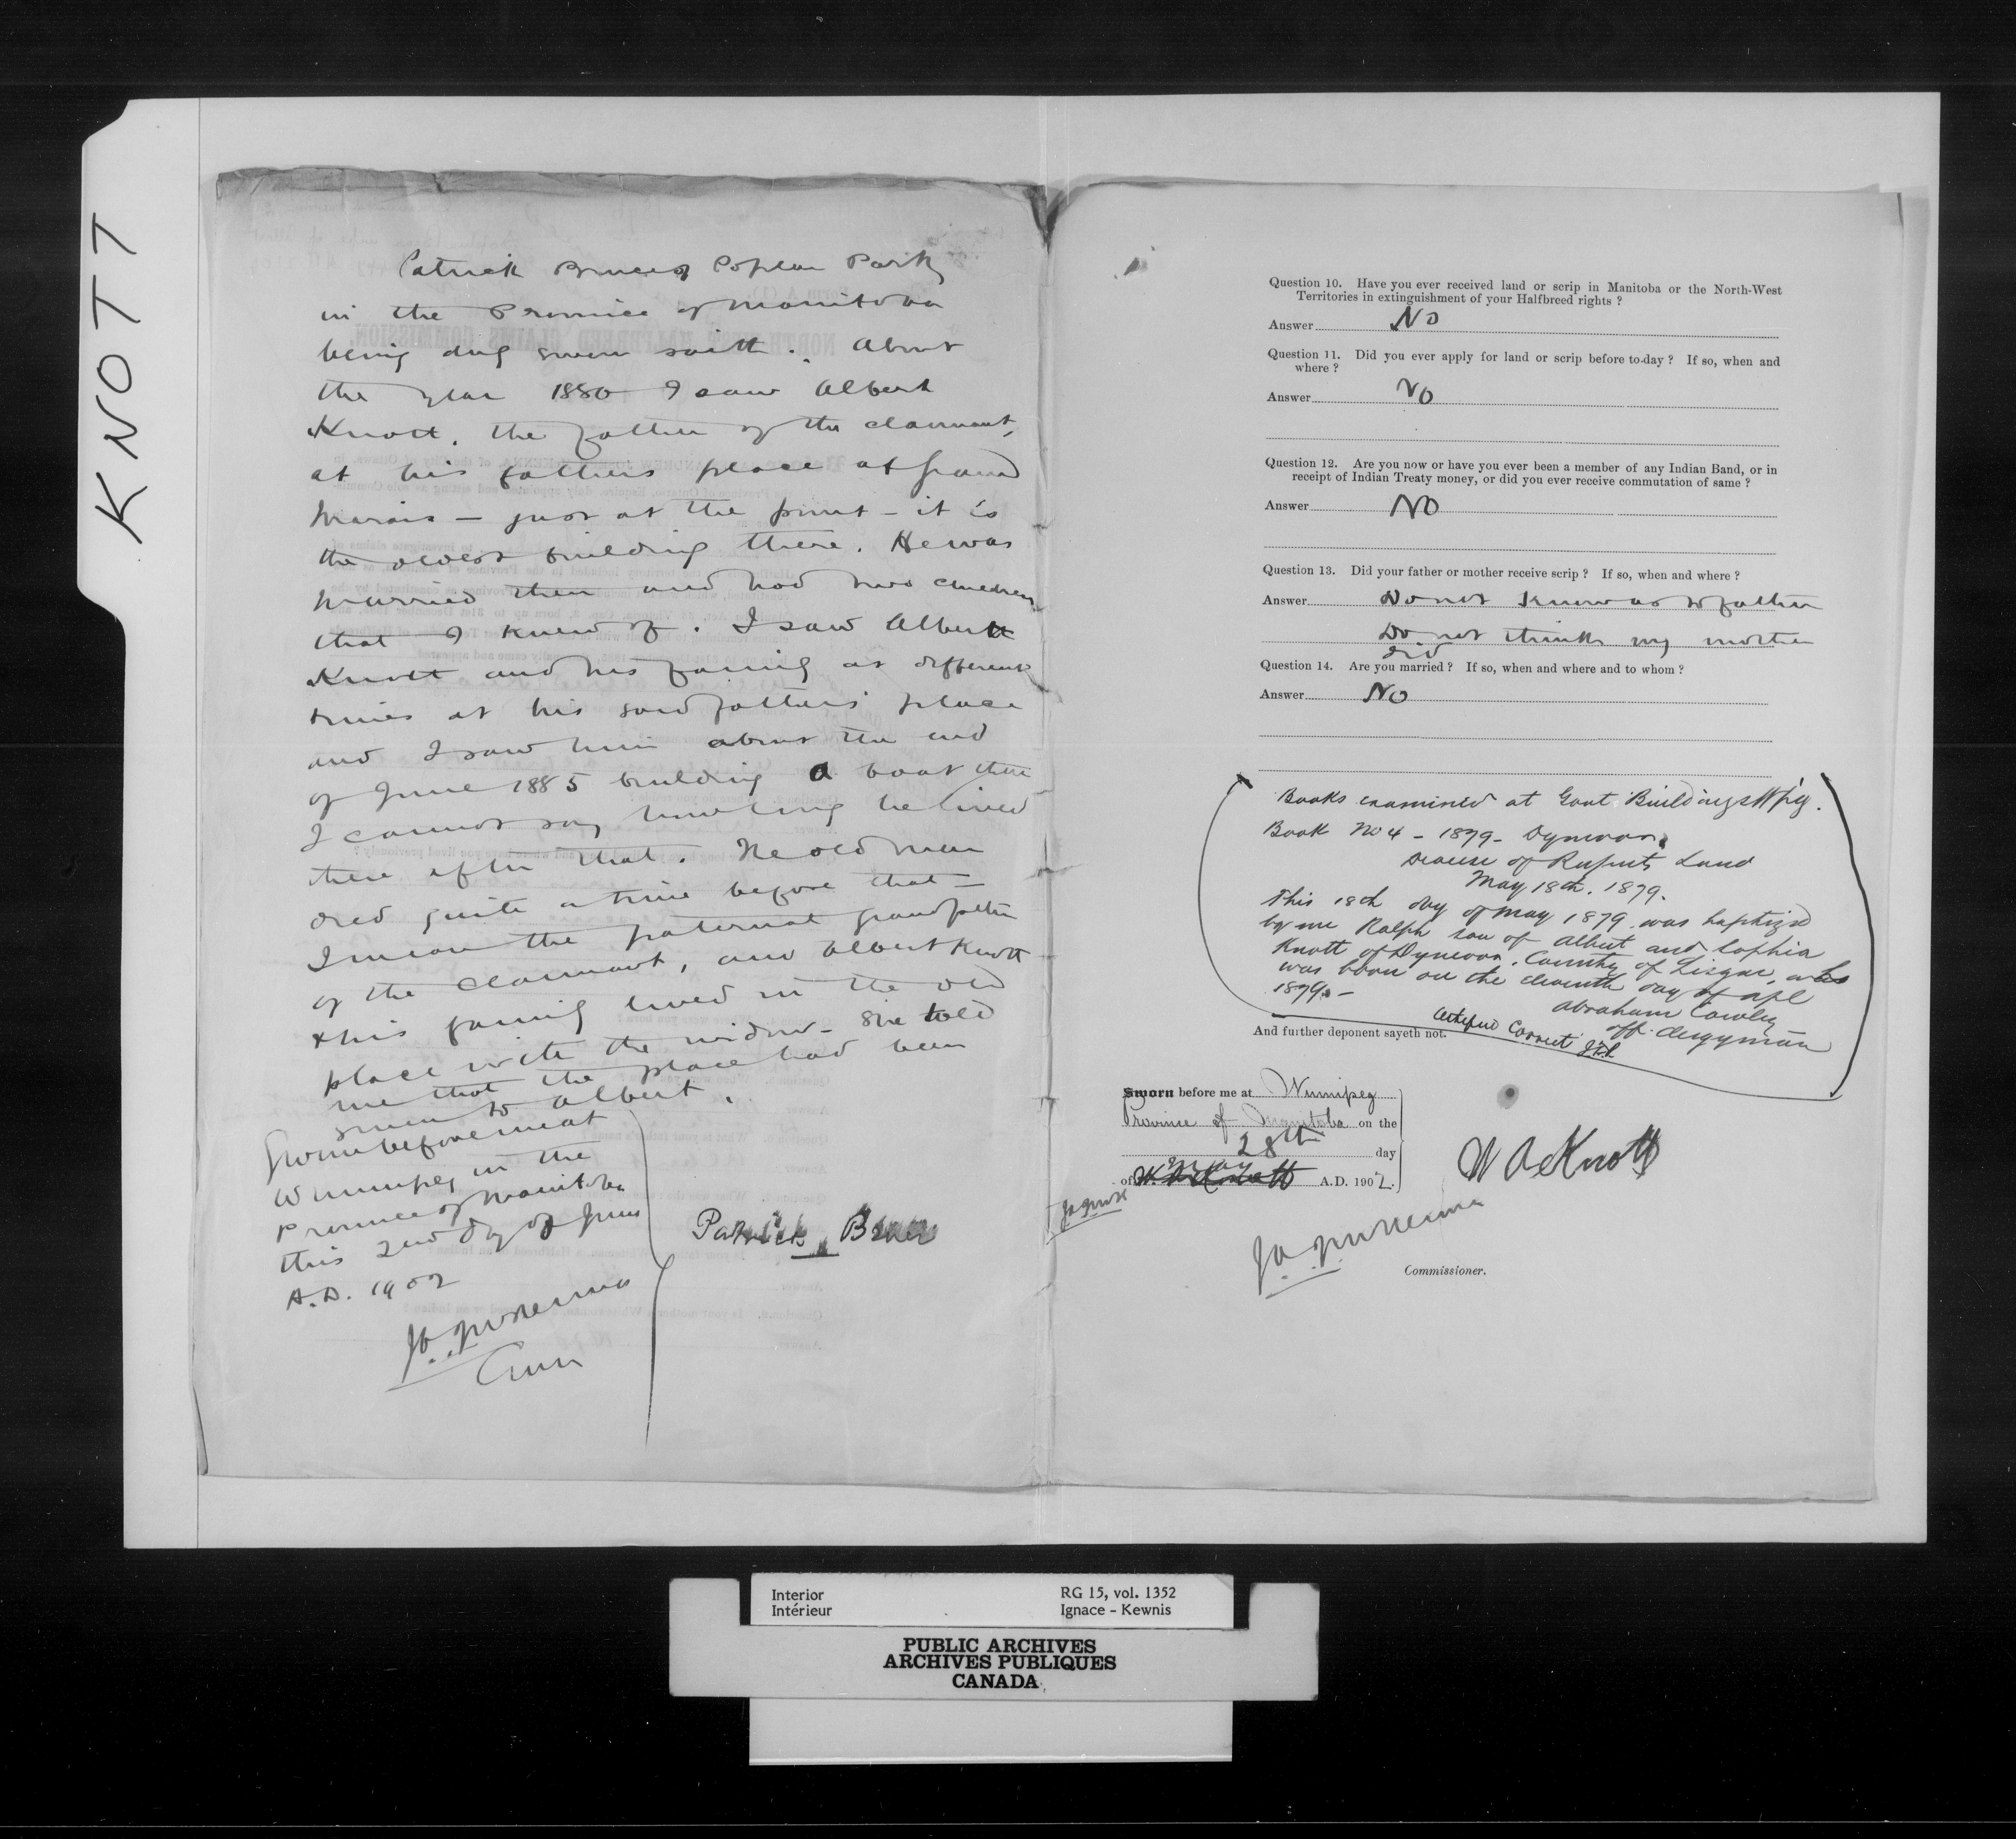 KNOTT
Patrick Bruce of Poplar Park
in the Province of Manitoba
being duly sworn saith. About
the year 1880 I saw Albert
Knott, the father of the claimant,
at his fathers place at Grand
Marais — just at the point — it is
the oldest building there. He was
married then and had two children
that I knew of. I saw Albert
Knott and his family at different
times at his said fathers' place
and I saw him about the end
of June 1885 building a boat there
I cannot say how long he lived
there after that. The old man
died quite a time before that —
I mean the paternal grandfather
of the claimant, and Albert Knott
& his family lived in the old
place with the widow — She told
me that the place had been
given to Albert.
Sworn before me at
Winnipeg in the
Province of Manitoba
this 2nd day of June
A.D. 1902
Patrick Bruce
Question 10. Have you ever received land or scrip in Manitoba or the North-West
Territories in extinguishment of your Halfbreed rights ?
Answer No
Question 11. Did you ever apply for land or scrip before to-day ? If so, when and
where ?
Answer No
Question 12. Are you now or have you ever been a member of any Indian Band, or in
receipt of Indian Treaty money, or did you ever receive commutation of same ?
Answer No
Question 13. Did your father or mother receive scrip ? If so, when and where ?
Answer Do not know as to father
Do not think my mother
did
Question 14. Are you married ? If so, when and where and to whom ?
Answer No
Books examined at Govt Buildings Wpg.
Book No 4 — 1879 — Dynevor,
Diocese of Ruperts Land
May 18th. 1879.
This 18th day of May 1879 was baptized
by me Ralph son of Albert and Sophia
Knott of Dynevor, County of Lisgar, who
was born on the eleventh day of Apl
1879. —
Abraham Cowley
off. clergyman
Certified Correct
And further deponent sayeth not.
Sworn before me at Winnipeg
Province of Manitoba on the
28th day
of May A.D. 1902.
W A Knott
Commissioner.
Interior
Intérieur
RG 15, vol. 1352
Ignace - Kewnis
PUBLIC ARCHIVES
ARCHIVES PUBLIQUES
CANADA